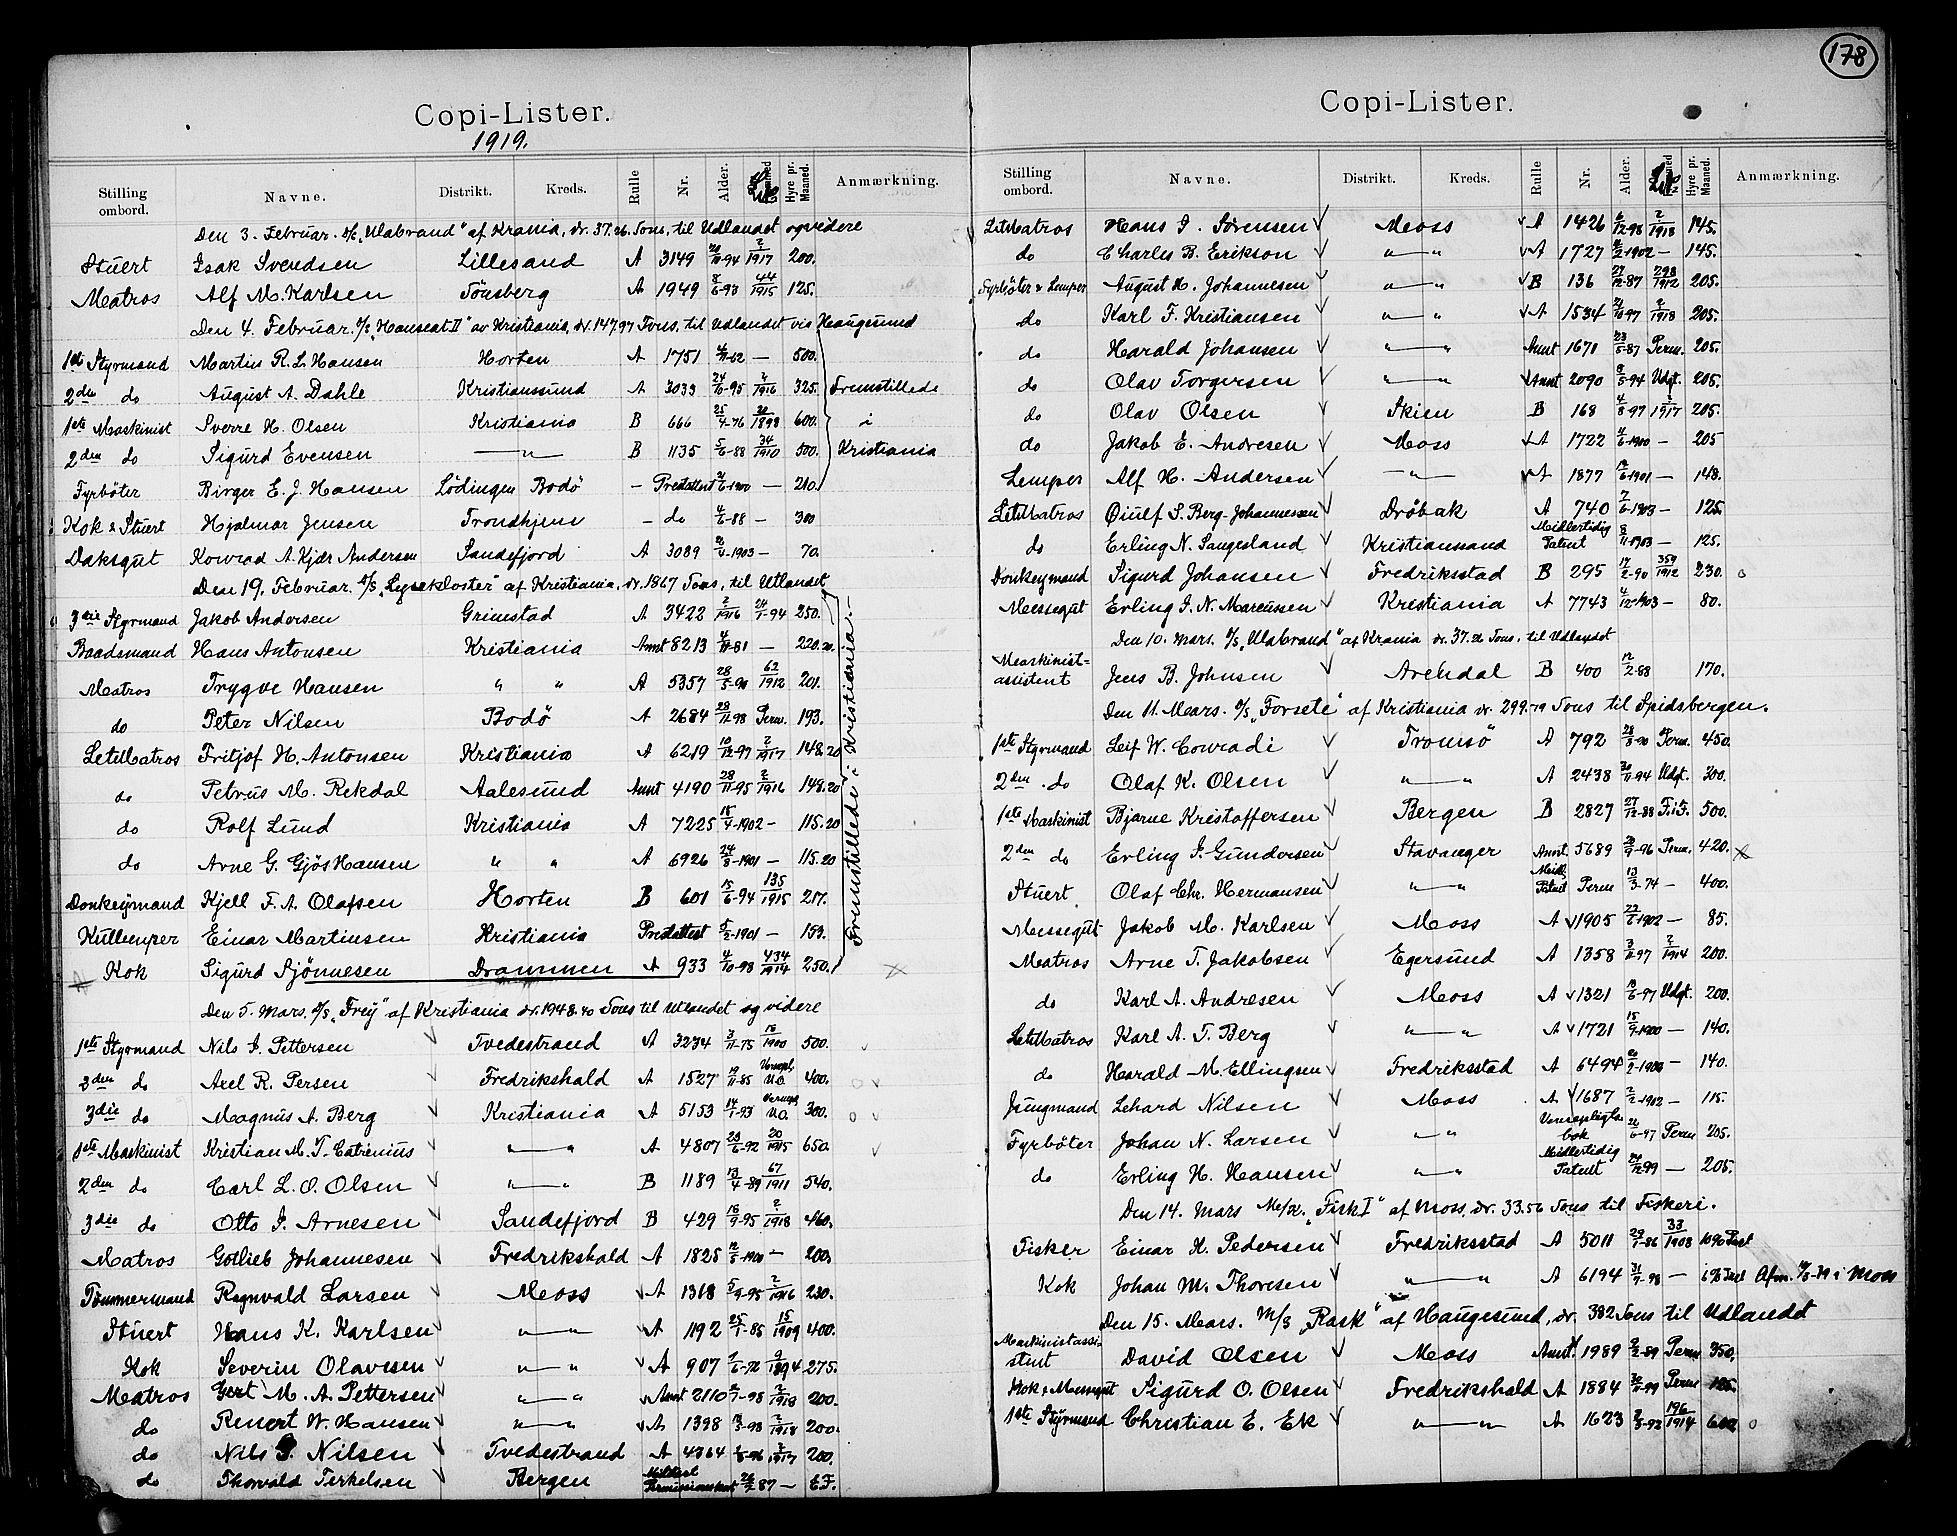 178
Copi-Lister.
1919.
Stilling ombord. Navne. Distrikt. Kreds. Rulle Nr. Alder. Hyre pr. Maaned. Anmærkning.
Den 3. Februar. "Ulabrand" af Krania, dr. 37.26 Tons, til Udlandet og videre
Stuert Isak Svendsen Lillesand A 3149 -94 2/1917 200.
Matros Alf M. Karlsen Tönsberg A 1949 8/6-93 44/1915 125.
Den 4. Februar. "Hauseat II" av Kristiania, dr. 147.97 Tons, til Udlandet via Haugesund
1ste Styrmand Martin R. L. Hansen Horten A 1751 -62 — 500.
2den do August A. Dahle Kristianssund A 3033 -95 2/1916 325. Fremstillede
1ste Maskinist Sverre H. Olsen Kristiania B 666 25/4-76 1898 600. i
2den do Sigurd Evensen —"— B 1135 5/6-88 34/1910 500. Kristiania
Fyrböter Birger E. J. Hansen Lödingen Bodö - Prestattest -1900 — 210.
Kok & Stuert Hjalmar Jensen Trondhjem - do 4/6-88 — 300
Daksgut Konrad A. Kjær Andersen Sandefjord A 3089 -1903 — 70.
Den 19. Februar. "Lysekloster" af Kristiania, dr. 1867 Tons, til Utlandet
3die Styrmand Jakob Andersen Grimstad A 3422 2/1916 -94 250.
Baadsmand Hans Antonsen Kristiania Annt 8213 -81 — 220.20
Matros Trygve Hansen " " A 5357 28/5-90 62/1912 201.
do Peter Nilsen Bodö A 2684 28/11-98 Perm. 193.
LetMatros Fritjof H. Antonsen Kristiania A 6219 10/12-97 2/1917 148.20
do Petrus M. Rekdal Aalesund Annt 4190 28/11-95 2/1916 148.20
do Rolf Lund Kristiania A 7225 -1902 - 115.20
do Arne G. Gjös Hansen " " A 6926 24/8-1901 — 115.20
Donkeymand Kjell F. A. Olafsen Horten B 601 15/6-94 135/1915 217.
Kullemper Einar Martinsen Kristiania Prestattest -1901 — 153.
Kok Sigurd Sjönnesen Drammen A 933 4/10-98 434/1914 250.
Fremstillede i Kristiania.
Den 5. Mars. "Frey" af Kristiania dr. 1948.40 Tons til Utlandet og videre
1ste Styrmand Nils J. Pettersen Tvedestrand A 3234 3/11-75 1900 500.
2den do Axel R. Persen Fredrikshald A 1527 19/11-85 400.
3die do Magnus A. Berg Kristiania A 5153 14/1-93 300.
1ste Maskinist Kristian M. T. —"— A 4807 23/6-92 20/1915 650.
2den do Carl L. O. Olsen —"— B 1189 13/4-89 67/1911 540.
3die do Otto J. Arnesen Sandefjord B 429 18/9-95 2/1918 460.
Matros Gotlieb Johannesen Fredrikshald A 1825 -1900 — 200.
Tömmermand Ragnvald Larsen Moss A 1318 5/9-95 2/1916 230.
Stuert Hans K. Karlsen —"— A 1192 25/1-85 15/1909 400.
Kok Severin Olavesen —"— A 907 -72 1894 275.
Matros Gert M. A. Pettersen —"— Annt 2110 -98 2/1918 200.
do Renert W. Hansen —"— A 1398 -98 2/1918 200.
do Nils J. Nilsen Tvedestrand A 4364 -96 1917 200.
do Thorvald Terkelsen Bergen -87 —
Copi-Lister.
Stilling ombord. Navne. Distrikt. Kreds. Rulle Nr. Alder. Hyre pr. Maaned. Anmærkning.
LetMatros Hans J. Sörensen Moss A 1426 6/12-98 2/1918 145.
do Charles B. Erikson —"— A 1727 -1902 — 145.
Fyrböter & Lemper August H. Johannesen —"— B 136 27/12-87 298/1912 205.
do Karl F. Kristiansen —"— A 1534 -97 2/1918 205.
do Harald Johansen —"— Annt 1671 23/5-87 Perm. 205.
do Olav Torgersen —"— Annt 2090 -94 Udgt. 205.
do Olav Olsen Skien B 168 4/8-97 1917 205.
do Jakob E. Andresen Moss A 1722 4/6-1900 — 205
Lemper Alf H. Andersen —"— A 1877 -1901 — 148.
LetMatros Öiulf S. Berg-Johannessen Dröbak A 740 -1903 — 125.
do Erling N. Saugesland Kristianssand Midlertidig Patent 8/11-1903 — 125.
Donkeymand Sigurd Johansen Fredriksstad B 295 17/2-90 359/1912 230.
Messegut Erling J. N. Marcussen Kristiania A 7743 4/12-1903 — 80.
Den 10. Mars. "Ulabrand" af Krania dr. 37.26 Tons, til Udlandet
Maskinist-assistent Jens B. Johnsen Arendal B 400 12/2-88 170.
Den 11. Mars. "Forsete" af Kristiania dr. 299.19 Tons til Spidsbergen.
1ste Styrmand Leif W. Conradi Tromsö A 792 -90 Perm. 450.
2den do Olaf K. Olsen —"— A 2438 -94 Udgt. 300.
1ste Maskinist Bjarne Kristoffersen Bergen B 2827 27/12-88 500.
2den do Erling J. Gundersen Stavanger Annt. 5689 -96 Perm. 420.
Stuert Olaf Chr. Hermansen —"— Midl. Patent Perm 13/3-74 — 400.
Messegut Jakob M. Karlsen Moss A 1905 22/6-1902 — 85.
Matros Arne T. Jakobsen Egersund A 1358 -97 2/1914 200.
do Karl A. Andresen Moss A 1321 -97 Udgt. 200.
LetMatros Karl A. T. Berg —"— A 1721 15/9-1900 — 140.
do Harald M. Ellingsen Fredriksstad A 6494 — 140.
Jungmand Lehard Nilsen Moss A 1687 — 115.
Fyrböter Johan N. Larsen —"— bok -97 Perm 205.
do Erling H. Hansen —"— Midlertidig Patent -99 — 205.
Den 14. Mars "Fisk I" af Moss, dr. 33.56 Tons til Fiskeri.
Fisker Einar K. Pedersen Fredriksstad A 5011 -86 33/1908 10%
Kok Johan M. Thoresen —"— A 6194 31/7-98 — Afm. i Moss
Den 15. Mars. M/S "Rask" af Haugesund, dr. 382 Tons til Udlandet
Maskinistassistent David Olsen Moss Annt. 1989 -89 Perm 350.
Kok & Messegut Sigurd O. Olsen Fredrikshald A 1884 -99 Perm
1ste Styrmand Christian E. Ek —"— A 1623 -92 196/1914 600